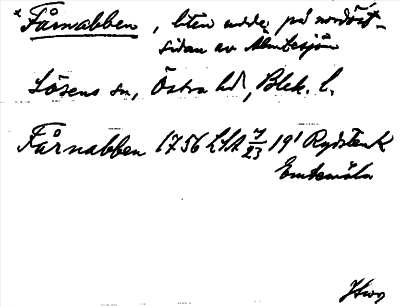 * Fårnabben, liten udde på nordöst-
sidan av Almtesjön
Lösens sn, Östra hd, Blek. l.
Fårnabben 1756 LSA 7/23 19¹ Rydstenk
Emtemåla